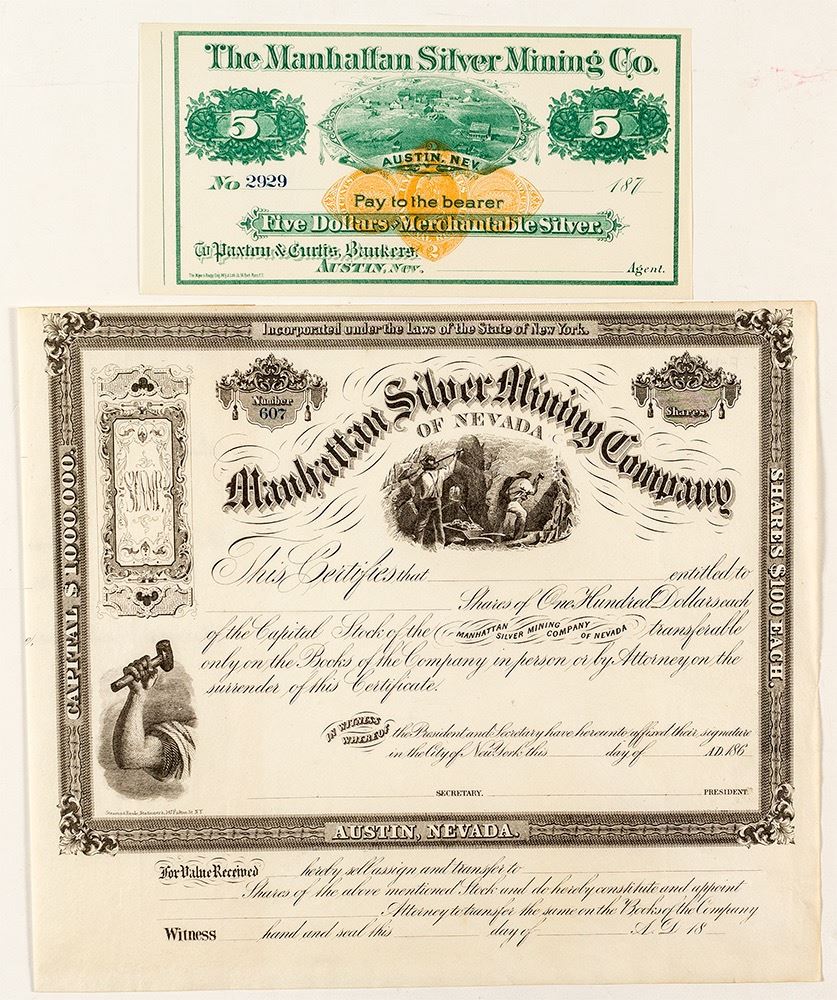 The Manhattan Silver Mining Co.
5 5
AUSTIN, NEV.
No 2929 187
Pay to the bearer
2
Five Dollars Merchantable Silver,
To Paxton & Curtis, Bankers,
AUSTIN, NEV. Agent.
Incorporated under the Laws of the State of New York.
Number
607
Shares.
Manhattan Silver Mining Company
OF NEVADA
CAPITAL $1000,000.
SHARES $100 EACH.
This Certifies that entitled to
Shares of One Hundred Dollars each
of the Capital Stock of the MANHATTAN SILVER MINING COMPANY OF NEVADA transferable
only on the Books of the Company in person or by Attorney on the
surrender of this Certificate.
IN WITNESS WHEREOF the President and Secretary have hereunto affixed their signature
in the City of New York this day of A.D. 186
SECRETARY. PRESIDENT.
AUSTIN, NEVADA.
For Value Received hereby sell assign and transfer to
Shares of the above mentioned Stock and do hereby constitute and appoint
Attorney to transfer the same on the Books of the Company
Witness hand and seal this day of A.D. 18